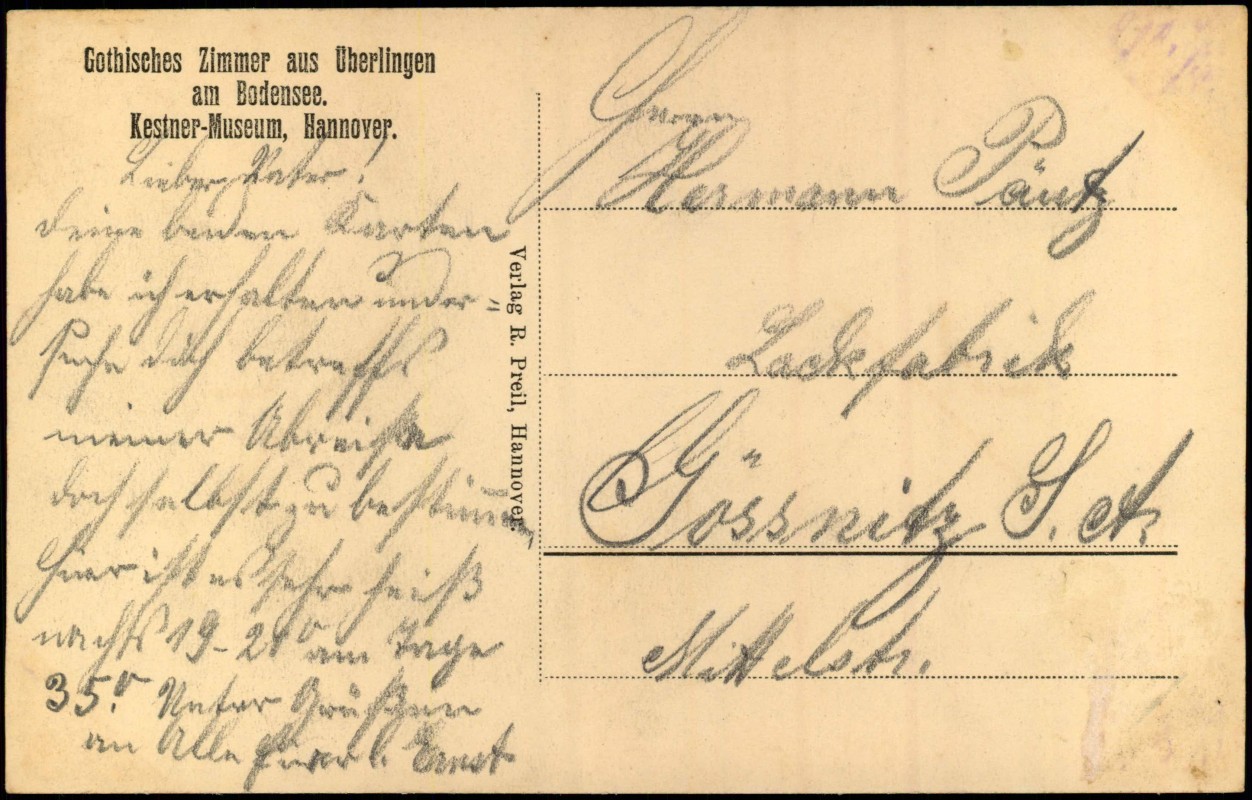 Gothisches Zimmer aus Überlingen
am Bodensee.
Kestner-Museum, Hannover.
Lieber Vater!
deine beiden Karten
habe ich erhalten und er=
suche dich betreffs
meiner Abreise
doch selbst zu bestimmen,
hier ist es sehr heiß
nachts 19-20° am Tage
35.° Unter Grüßen
an Alle Euer l. Ernst
Verlag R. Preil, Hannover.
Herrn
Hermann Päutz
Lackfabrik
Gössnitz S. A.
Mittelstr.